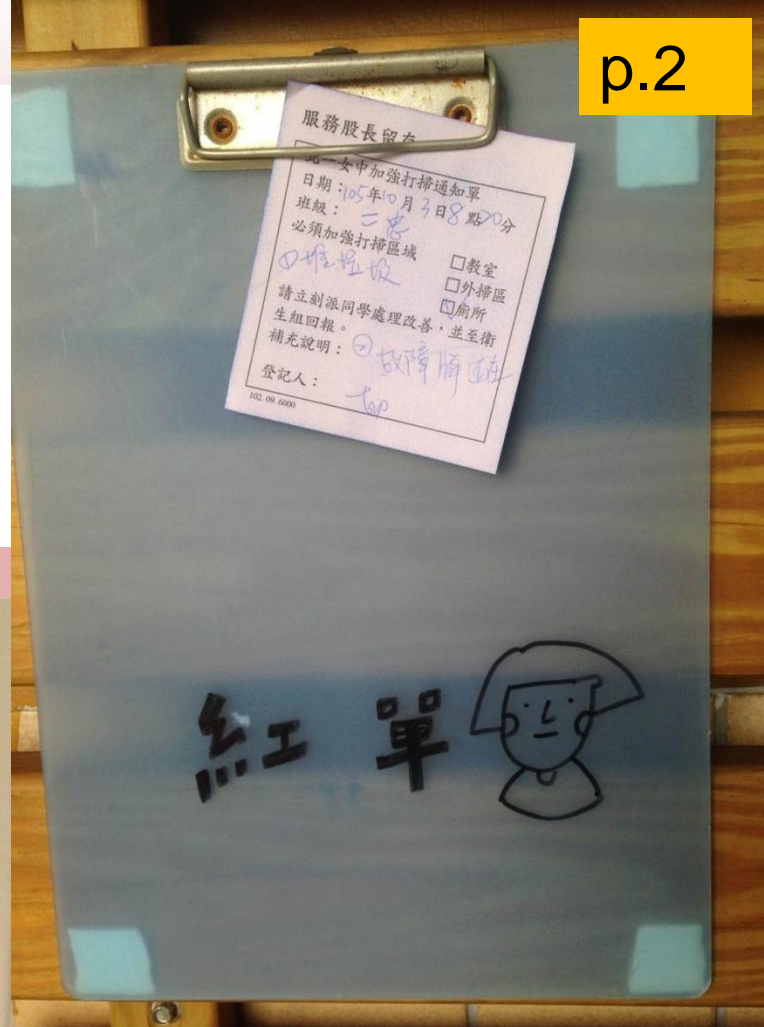 p.2
服務股長留存
北一女中加強打掃通知單
日期：105年10月3日8點20分
班級：二忠
必須加強打掃區域
□教室
①堆垃圾
□外掃區
☑廁所
請立刻派同學處理改善，並至衛
生組回報。
補充說明：②故障牌
登記人：
102. 09. 6000
紅單